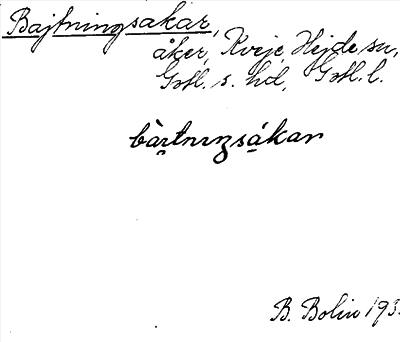 Bajtningsakar,
åker, Kveje, Hejde sn,
Gotl. s. hd, Gotl. l.
bàɪtnɪŋsákar
B. Bolin 193